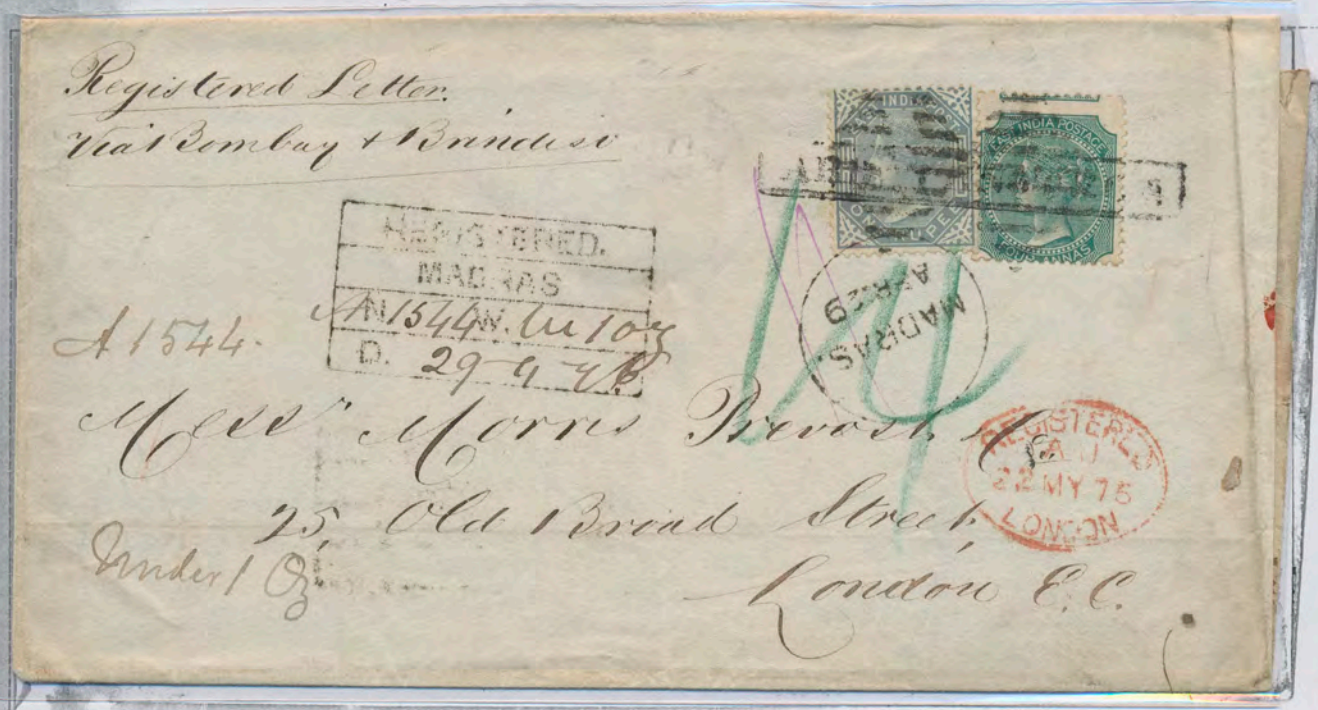 Registered Letter.
Via Bombay + Brindisi
EAST INDIA POSTAGE
ONE RUPEE
EAST INDIA POSTAGE
FOUR ANNAS
REGISTERED.
MADRAS
N. A 1544 W. Un 1 oz
D. 29-4-75
A 1544.
MADRAS.
APR 29
14
Messrs Morris Prevost & Co
25, Old Broad Street,
London E.C.
REGISTERED
22 MY 75
LONDON
Under 1 Oz